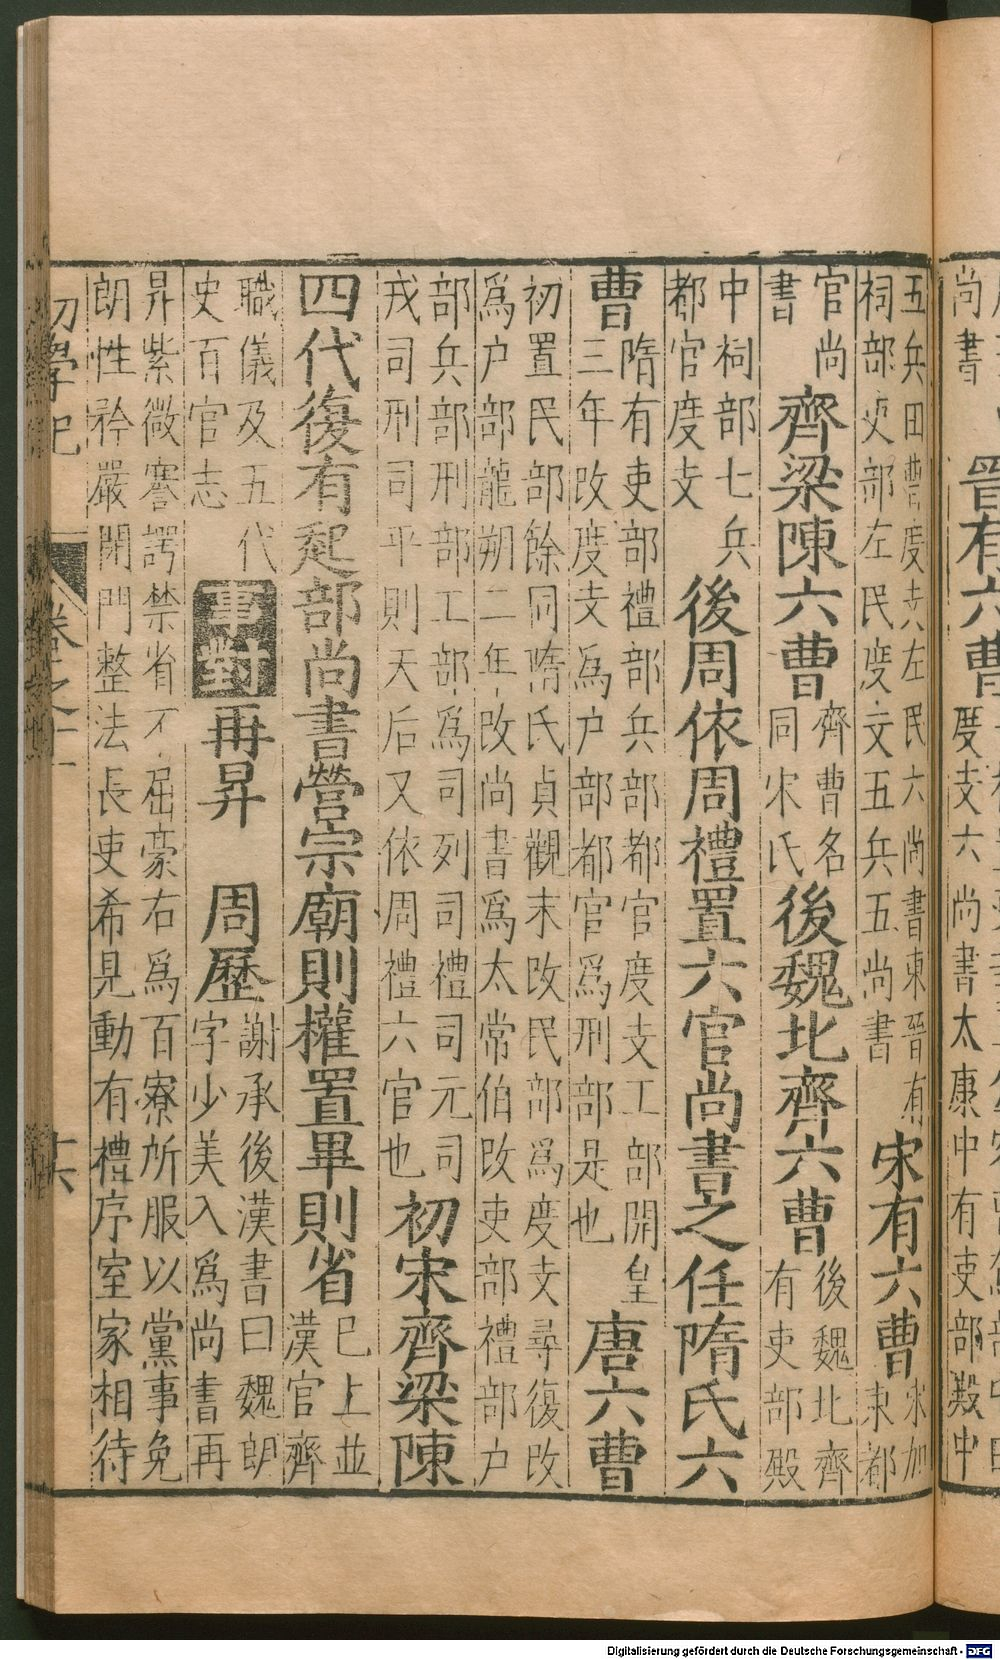 尚書
晉有六曹
度支六尚書太康中有吏部殿中
五兵田曹度支左民六尚書東晉有
祠部吏部左民度支五兵五尚書
宋有六曹
宋加
東都
官尚
書
齊梁陳六曹
齊曹名
同宋氏
後魏北齊六曹
後魏北齊
有吏部殿
中祠部七兵
都官度支
後周依周禮置六官尚書之任隋氏六
曹
隋有吏部禮部兵部都官度支工部開皇
三年改度支爲户部都官爲刑部是也
唐六曹
初置民部餘同隋氏貞觀末改民部爲度支尋復改
爲户部龍朔二年改尚書爲太常伯改吏部禮部户
部兵部刑部工部爲司列司禮司元司
戎司刑司平則天后又依周禮六官也
初宋齊梁陳
四代復有起部尚書營宗廟則權置畢則省
已上並
漢官齊
職儀及五代
史百官志
事對
再昇 周歷
謝承後漢書曰魏朗
字少美入爲尚書再
昇紫微謇諤禁省不屈豪右爲百寮所服以黨事免
朗性矜嚴閉門整法長吏希見動有禮序室家相待
初學記
卷之十一
十六
Digitalisierung gefördert durch die Deutsche Forschungsgemeinschaft - DFG